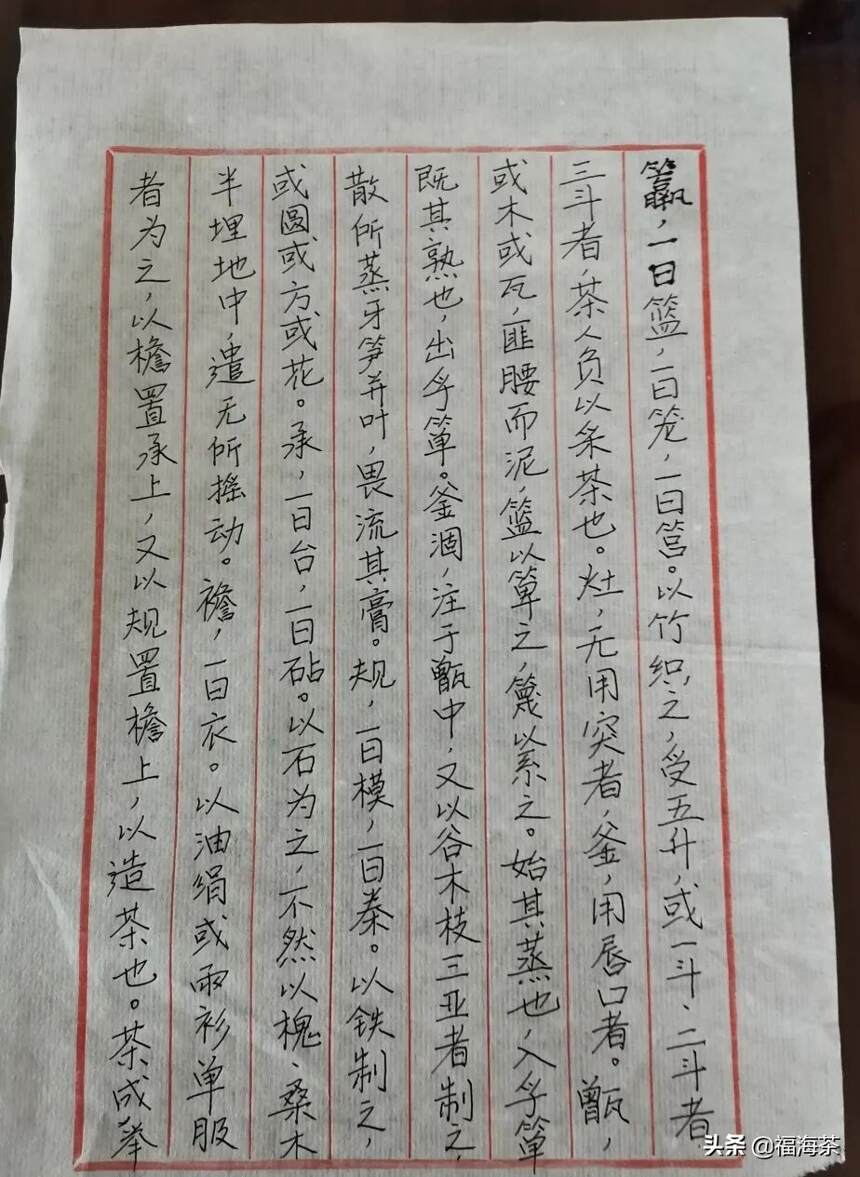 籯，一曰篮，一曰笼，一曰筥。以竹织之，受五升，或一斗、二斗者、
三斗者，茶人负以采茶也。灶，无用突者，釜，用唇口者。甑，
或木或瓦，匪腰而泥，篮以箄之，篾以系之。始其蒸也，入乎箄
既其熟也，出乎箄。釜涸，注于甑中，又以谷木枝三亚者制之，
散所蒸牙笋并叶，畏流其膏。规，一曰模，一曰棬。以铁制之，
或圆或方或花。承，一曰台，一曰砧。以石为之，不然以槐、桑木
半埋地中，遣无所摇动。襜，一曰衣。以油绢或雨衫单服
者为之，以檐置承上，又以规置檐上，以造茶也。茶成举
头条 @福海茶